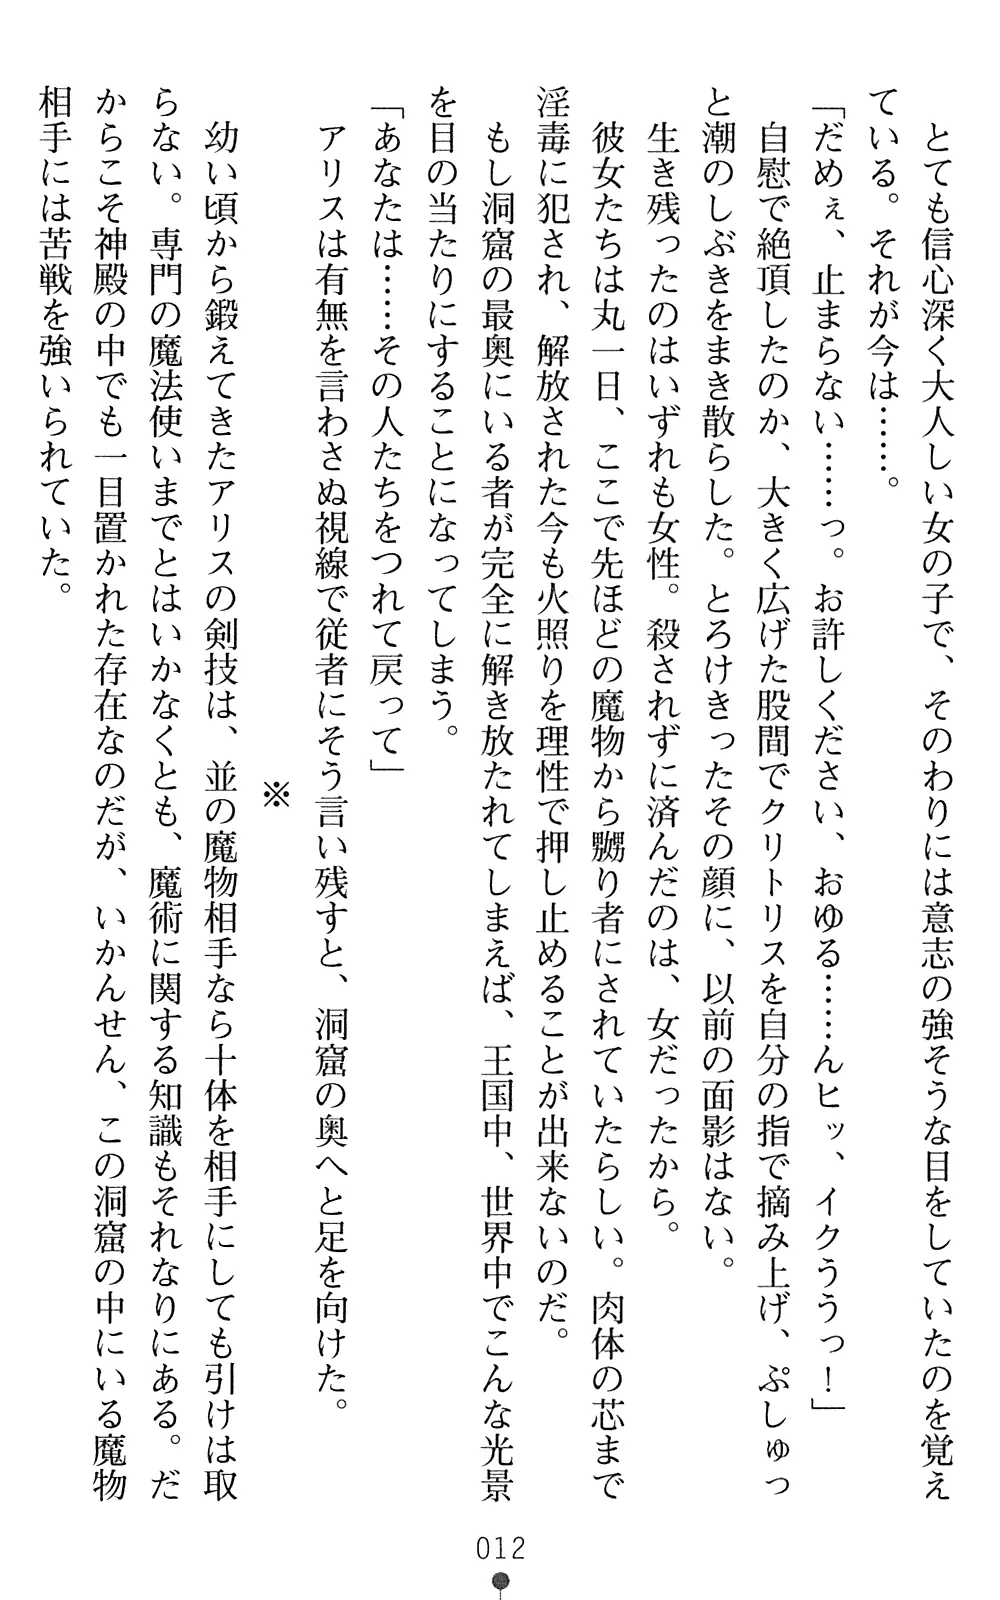 とても信心深く大人しい女の子で、そのわりには意志の強そうな目をしていたのを覚え
ている。それが今は……。
「だめぇ、止まらない……っ。お許しください、おゆる……んヒッ、イクううっ！」
自慰で絶頂したのか、大きく広げた股間でクリトリスを自分の指で摘み上げ、ぷしゅっ
と潮のしぶきをまき散らした。とろけきったその顔に、以前の面影はない。
生き残ったのはいずれも女性。殺されずに済んだのは、女だったから。
彼女たちは丸一日、ここで先ほどの魔物から嬲り者にされていたらしい。肉体の芯まで
淫毒に犯され、解放された今も火照りを理性で押し止めることが出来ないのだ。
もし洞窟の最奥にいる者が完全に解き放たれてしまえば、王国中、世界中でこんな光景
を目の当たりにすることになってしまう。
「あなたは……その人たちをつれて戻って」
アリスは有無を言わさぬ視線で従者にそう言い残すと、洞窟の奥へと足を向けた。
※
幼い頃から鍛えてきたアリスの剣技は、並の魔物相手なら十体を相手にしても引けは取
らない。専門の魔法使いまでとはいかなくとも、魔術に関する知識もそれなりにある。だ
からこそ神殿の中でも一目置かれた存在なのだが、いかんせん、この洞窟の中にいる魔物
相手には苦戦を強いられていた。
012